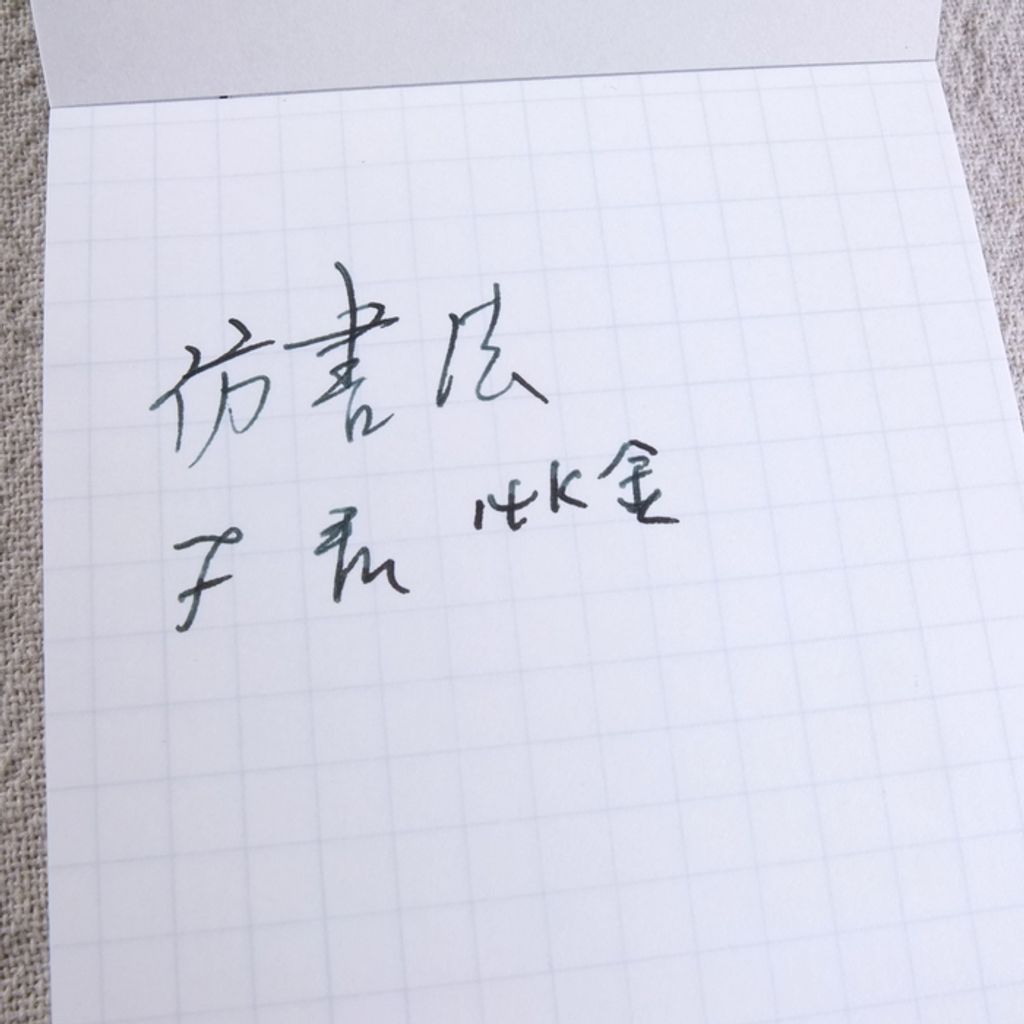 仿書法
子 14K金